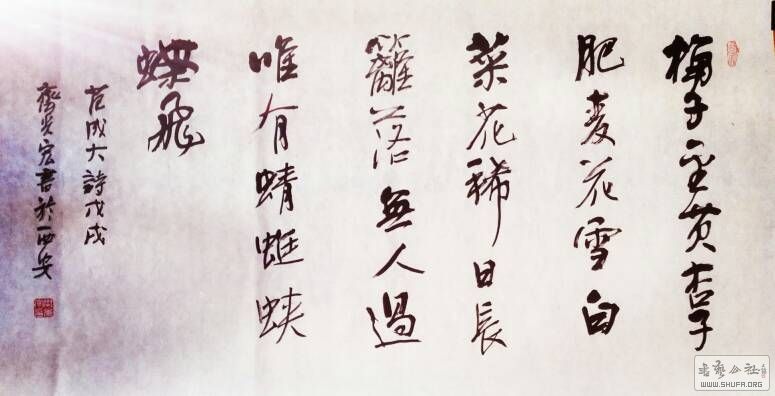 梅子金黄杏子
肥麦花雪白
菜花稀日長
籬落無人過
唯有蜻蜓蛱
蝶飛
范成大詩戊戌
宏書於西安
書藝公社
WWW.SHUFA.ORG